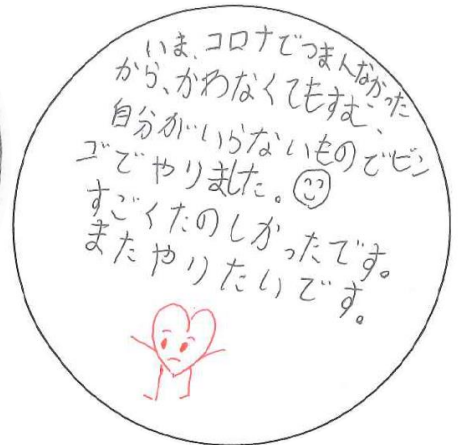 いま、コロナでつまんなかった
から、かわなくてもすむ、
自分がいらないものでビン
ゴでやりました。
すごくたのしかったです。
またやりたいです。